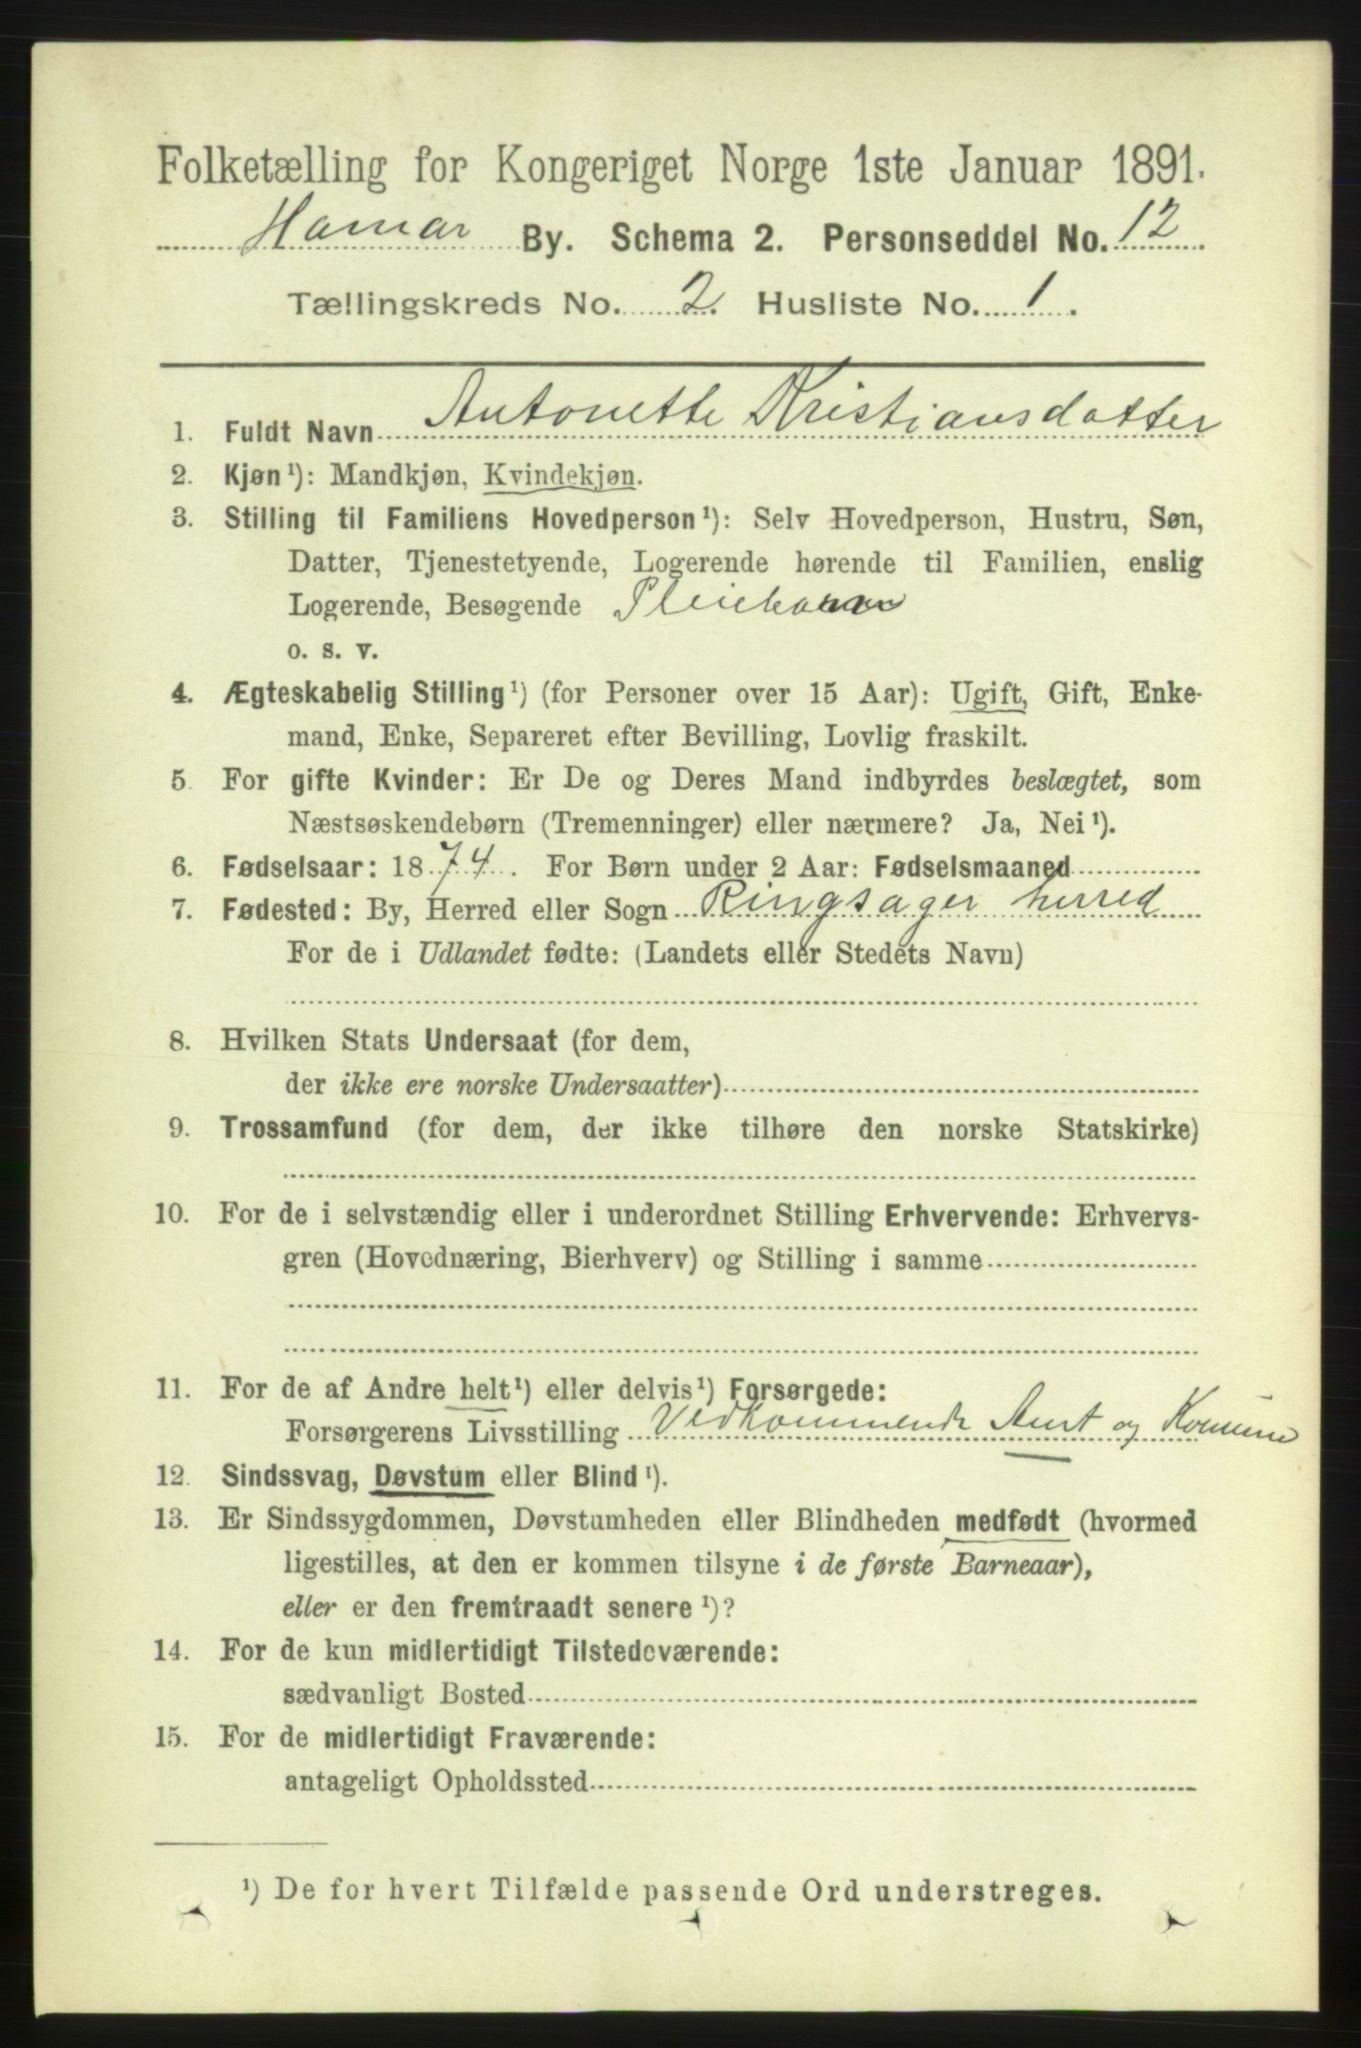 Folketælling for Kongeriget Norge 1ste Januar 1891.
Hamar By. Schema 2. Personseddel No. 12
Tællingskreds No. 2. Husliste No. 1.
1. Fuldt Navn Antonette Kristiansdatter
2. Kjøn¹): Mandkjøn, Kvindekjøn.
3. Stilling til Familiens Hovedperson¹): Selv Hovedperson, Hustru, Søn,
Datter, Tjenestetyende, Logerende hørende til Familien, enslig
Logerende, Besøgende Pleiebarn
o. s. v.
4. Ægteskabelig Stilling¹) (for Personer over 15 Aar): Ugift, Gift, Enke-
mand, Enke, Separeret efter Bevilling, Lovlig fraskilt.
5. For gifte Kvinder: Er De og Deres Mand indbyrdes beslægtet, som
Næstsøskendebørn (Tremenninger) eller nærmere? Ja, Nei¹).
6. Fødselsaar: 1874. For Børn under 2 Aar: Fødselsmaaned
7. Fødested: By, Herred eller Sogn Ringsager herred
For de i Udlandet fødte: (Landets eller Stedets Navn)
8. Hvilken Stats Undersaat (for dem,
der ikke ere norske Undersaatter)
9. Trossamfund (for dem, der ikke tilhøre den norske Statskirke)
10. For de i selvstændig eller i underordnet Stilling Erhvervende: Erhvervs-
gren (Hovednæring, Bierhverv) og Stilling i samme
11. For de af Andre helt¹) eller delvis¹) Forsørgede:
Forsørgerens Livsstilling Vedkommende Amt og Komune
12. Sindssvag, Døvstum eller Blind¹).
13. Er Sindssygdommen, Døvstumheden eller Blindheden medfødt (hvormed
ligestilles, at den er kommen tilsyne i de første Barneaar),
eller er den fremtraadt senere¹)?
14. For de kun midlertidigt Tilstedeværende:
sædvanligt Bosted
15. For de midlertidigt Fraværende:
antageligt Opholdssted
¹) De for hvert Tilfælde passende Ord understreges.